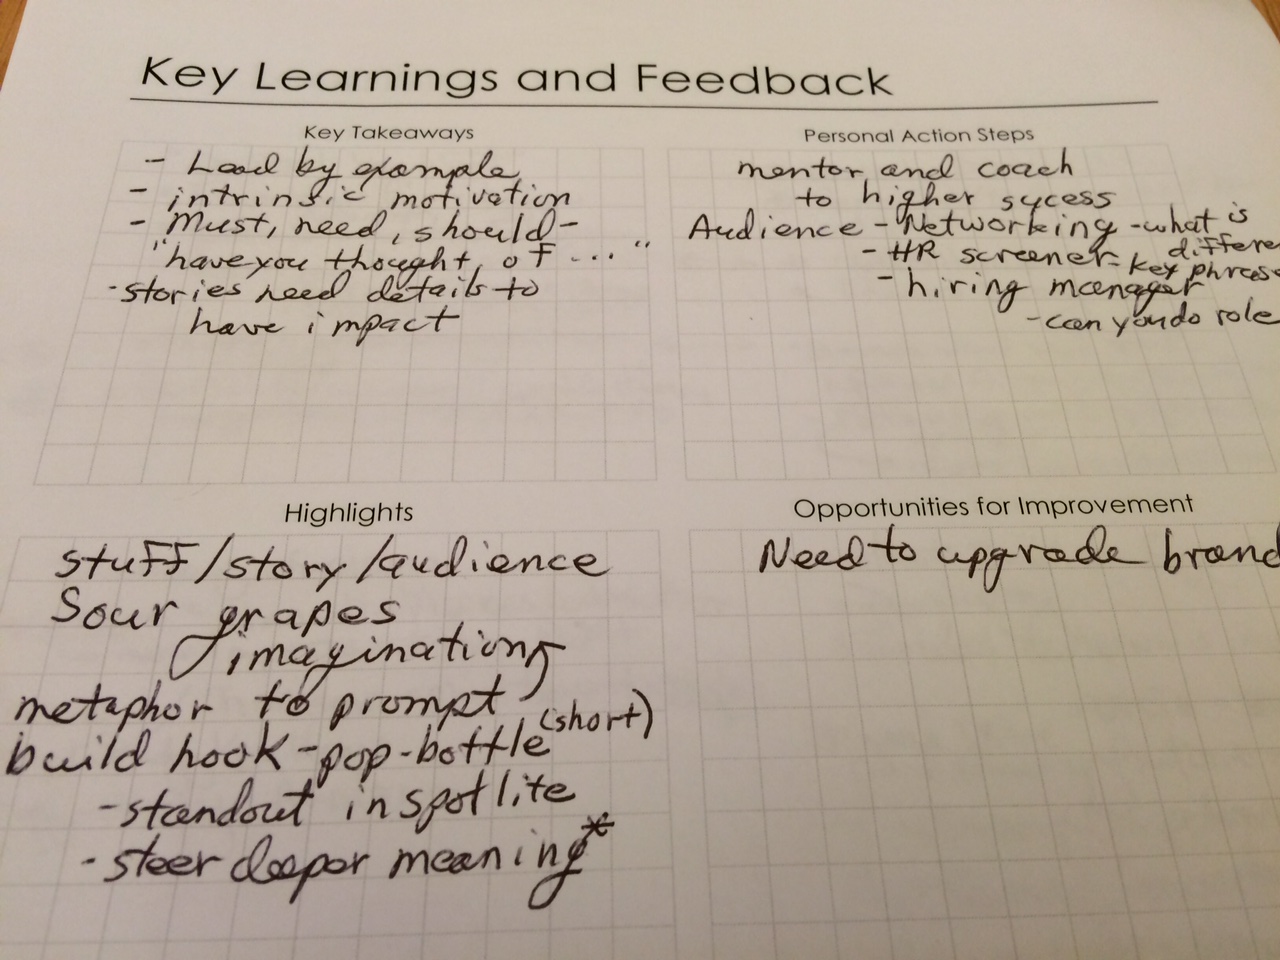 Key Learnings and Feedback
Key Takeaways
- Lead by example
- intrinsic motivation
- Must, need, should -
"have you thought of ... "
- stories need details to
have impact
Personal Action Steps
mentor and coach
to higher sycess
Audience - Networking - what is
differen
- HR screener - key phrase
- hiring manager
- can you do role
Highlights
stuff/story/audience
Sour grapes
imagination
metaphor to prompt
build hook - pop-bottle (short)
- standout in spotlite
- steer deeper meaning*
Opportunities for Improvement
Need to upgrade brand